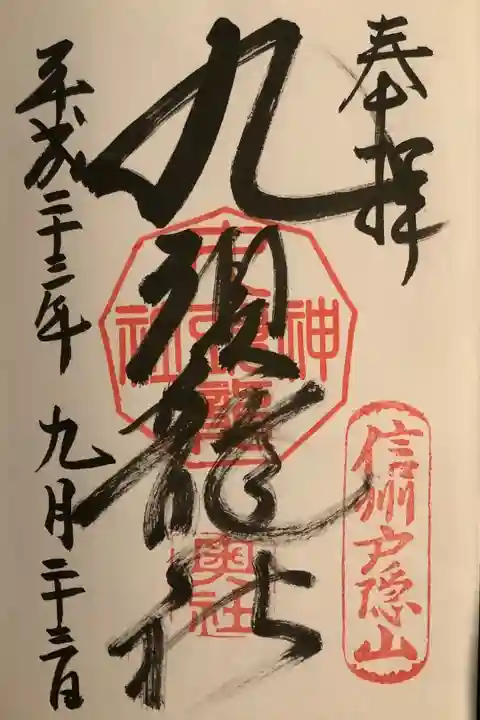 奉拝
信州戸隠山
九頭龍社
奥社
平成二十三年 九月二十三日